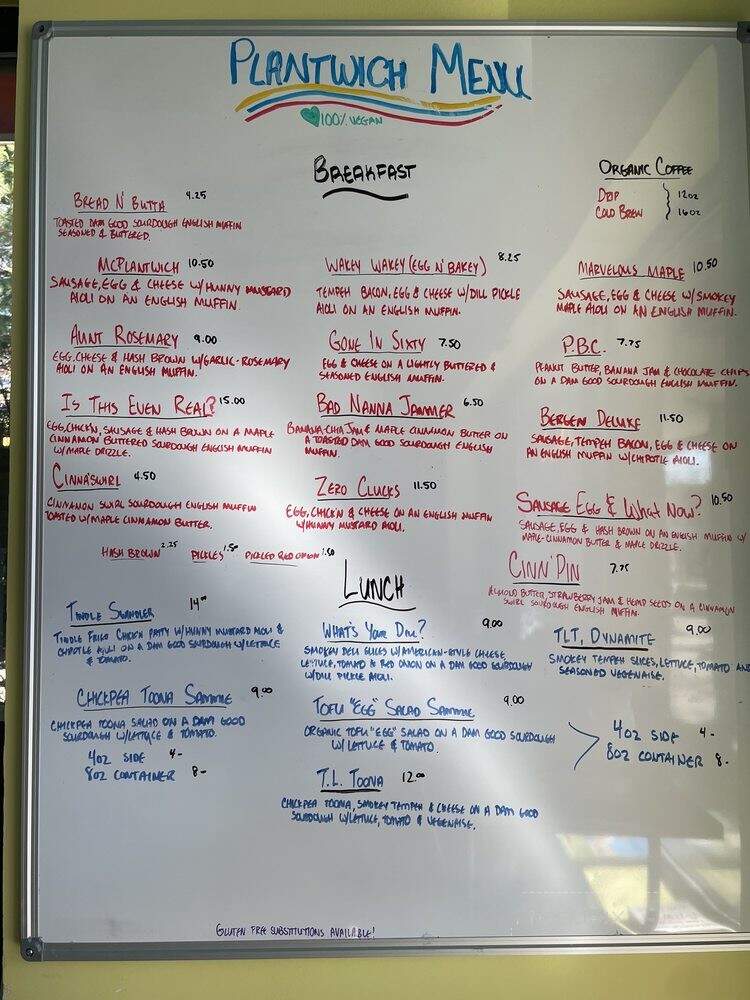 PLANTWICH MENU
100% VEGAN
BREAKFAST
ORGANIC COFFEE
DRIP 12oz
COLD BREW 16oz
BREAD N' BUTTA 4.25
TOASTED DAM GOOD SOURDOUGH ENGLISH MUFFIN
SEASONED & BUTTERED.
MCPLANTWICH 10.50
SAUSAGE, EGG & CHEESE W/HUNNY MUSTARD
AIOLI ON AN ENGLISH MUFFIN.
WAKEY WAKEY (EGG N' BAKEY) 8.25
TEMPEH BACON, EGG & CHEESE W/DILL PICKLE
AIOLI ON AN ENGLISH MUFFIN.
MARVELOUS MAPLE 10.50
SAUSAGE, EGG & CHEESE W/SMOKEY
MAPLE AIOLI ON AN ENGLISH MUFFIN.
AUNT ROSEMARY 9.00
EGG, CHEESE & HASH BROWN W/GARLIC-ROSEMARY
AIOLI ON AN ENGLISH MUFFIN.
GONE IN SIXTY 7.50
EGG & CHEESE ON A LIGHTLY BUTTERED &
SEASONED ENGLISH MUFFIN.
P.B.C. 7.75
PEANUT BUTTER, BANANA JAM & CHOCOLATE CHIPS
ON A DAM GOOD SOURDOUGH ENGLISH MUFFIN.
IS THIS EVEN REAL? 15.00
EGG, CHICK'N, SAUSAGE & HASH BROWN ON A MAPLE
CINNAMON BUTTERED SOURDOUGH ENGLISH MUFFIN
W/MAPLE DRIZZLE.
BAD NANNA JAMMER 6.50
BANANA-CHIA JAM & MAPLE CINNAMON BUTTER ON
A TOASTED DAM GOOD SOURDOUGH ENGLISH
MUFFIN.
BERGEN DELUXE 11.50
SAUSAGE, TEMPEH BACON, EGG & CHEESE ON
AN ENGLISH MUFFIN W/CHIPOTLE AIOLI.
CINNA'SWIRL 4.50
CINNAMON SWIRL SOURDOUGH ENGLISH MUFFIN
TOASTED W/MAPLE CINNAMON BUTTER.
ZERO CLUCKS 11.50
EGG, CHICK'N & CHEESE ON AN ENGLISH MUFFIN
W/HUNNY MUSTARD AIOLI.
SAUSAGE EGG & WHAT NOW? 10.50
SAUSAGE, EGG & HASH BROWN ON AN ENGLISH MUFFIN W/
MAPLE-CINNAMON BUTTER & MAPLE DRIZZLE.
HASH BROWN 2.25 PICKLES 1.50 PICKLED RED ONION 1.50
CINN'PIN 7.75
ALMOND BUTTER, STRAWBERRY JAM & HEMP SEEDS ON A CINNAMON
SWIRL SOURDOUGH ENGLISH MUFFIN.
LUNCH
TINDLE SWINDLER 14.00
TINDLE FRIED CHICKN PATTY W/HUNNY MUSTARD AIOLI &
CHIPOTLE AIOLI ON A DAM GOOD SOURDOUGH W/LETTUCE
& TOMATO.
WHAT'S YOUR DILL? 9.00
SMOKEY DELI SLICES W/AMERICAN-STYLE CHEESE,
LETTUCE, TOMATO & RED ONION ON A DAM GOOD SOURDOUGH
W/DILL PICKLE AIOLI.
TLT, DYNAMITE 9.00
SMOKEY TEMPEH SLICES, LETTUCE, TOMATO AND
SEASONED VEGENAISE.
CHICKPEA TOONA SAMMIE 9.00
CHICKPEA TOONA SALAD ON A DAM GOOD
SOURDOUGH W/LETTUCE & TOMATO.
4oz SIDE 4-
8oz CONTAINER 8-
TOFU "EGG" SALAD SAMMIE 9.00
ORGANIC TOFU "EGG" SALAD ON A DAM GOOD SOURDOUGH
W/ LETTUCE & TOMATO.
4oz SIDE 4-
8oz CONTAINER 8-
T.L. TOONA 12.00
CHICKPEA TOONA, SMOKEY TEMPEH & CHEESE ON A DAM GOOD
SOURDOUGH W/LETTUCE, TOMATO & VEGENAISE.
GLUTEN FREE SUBSTITUTIONS AVAILABLE!